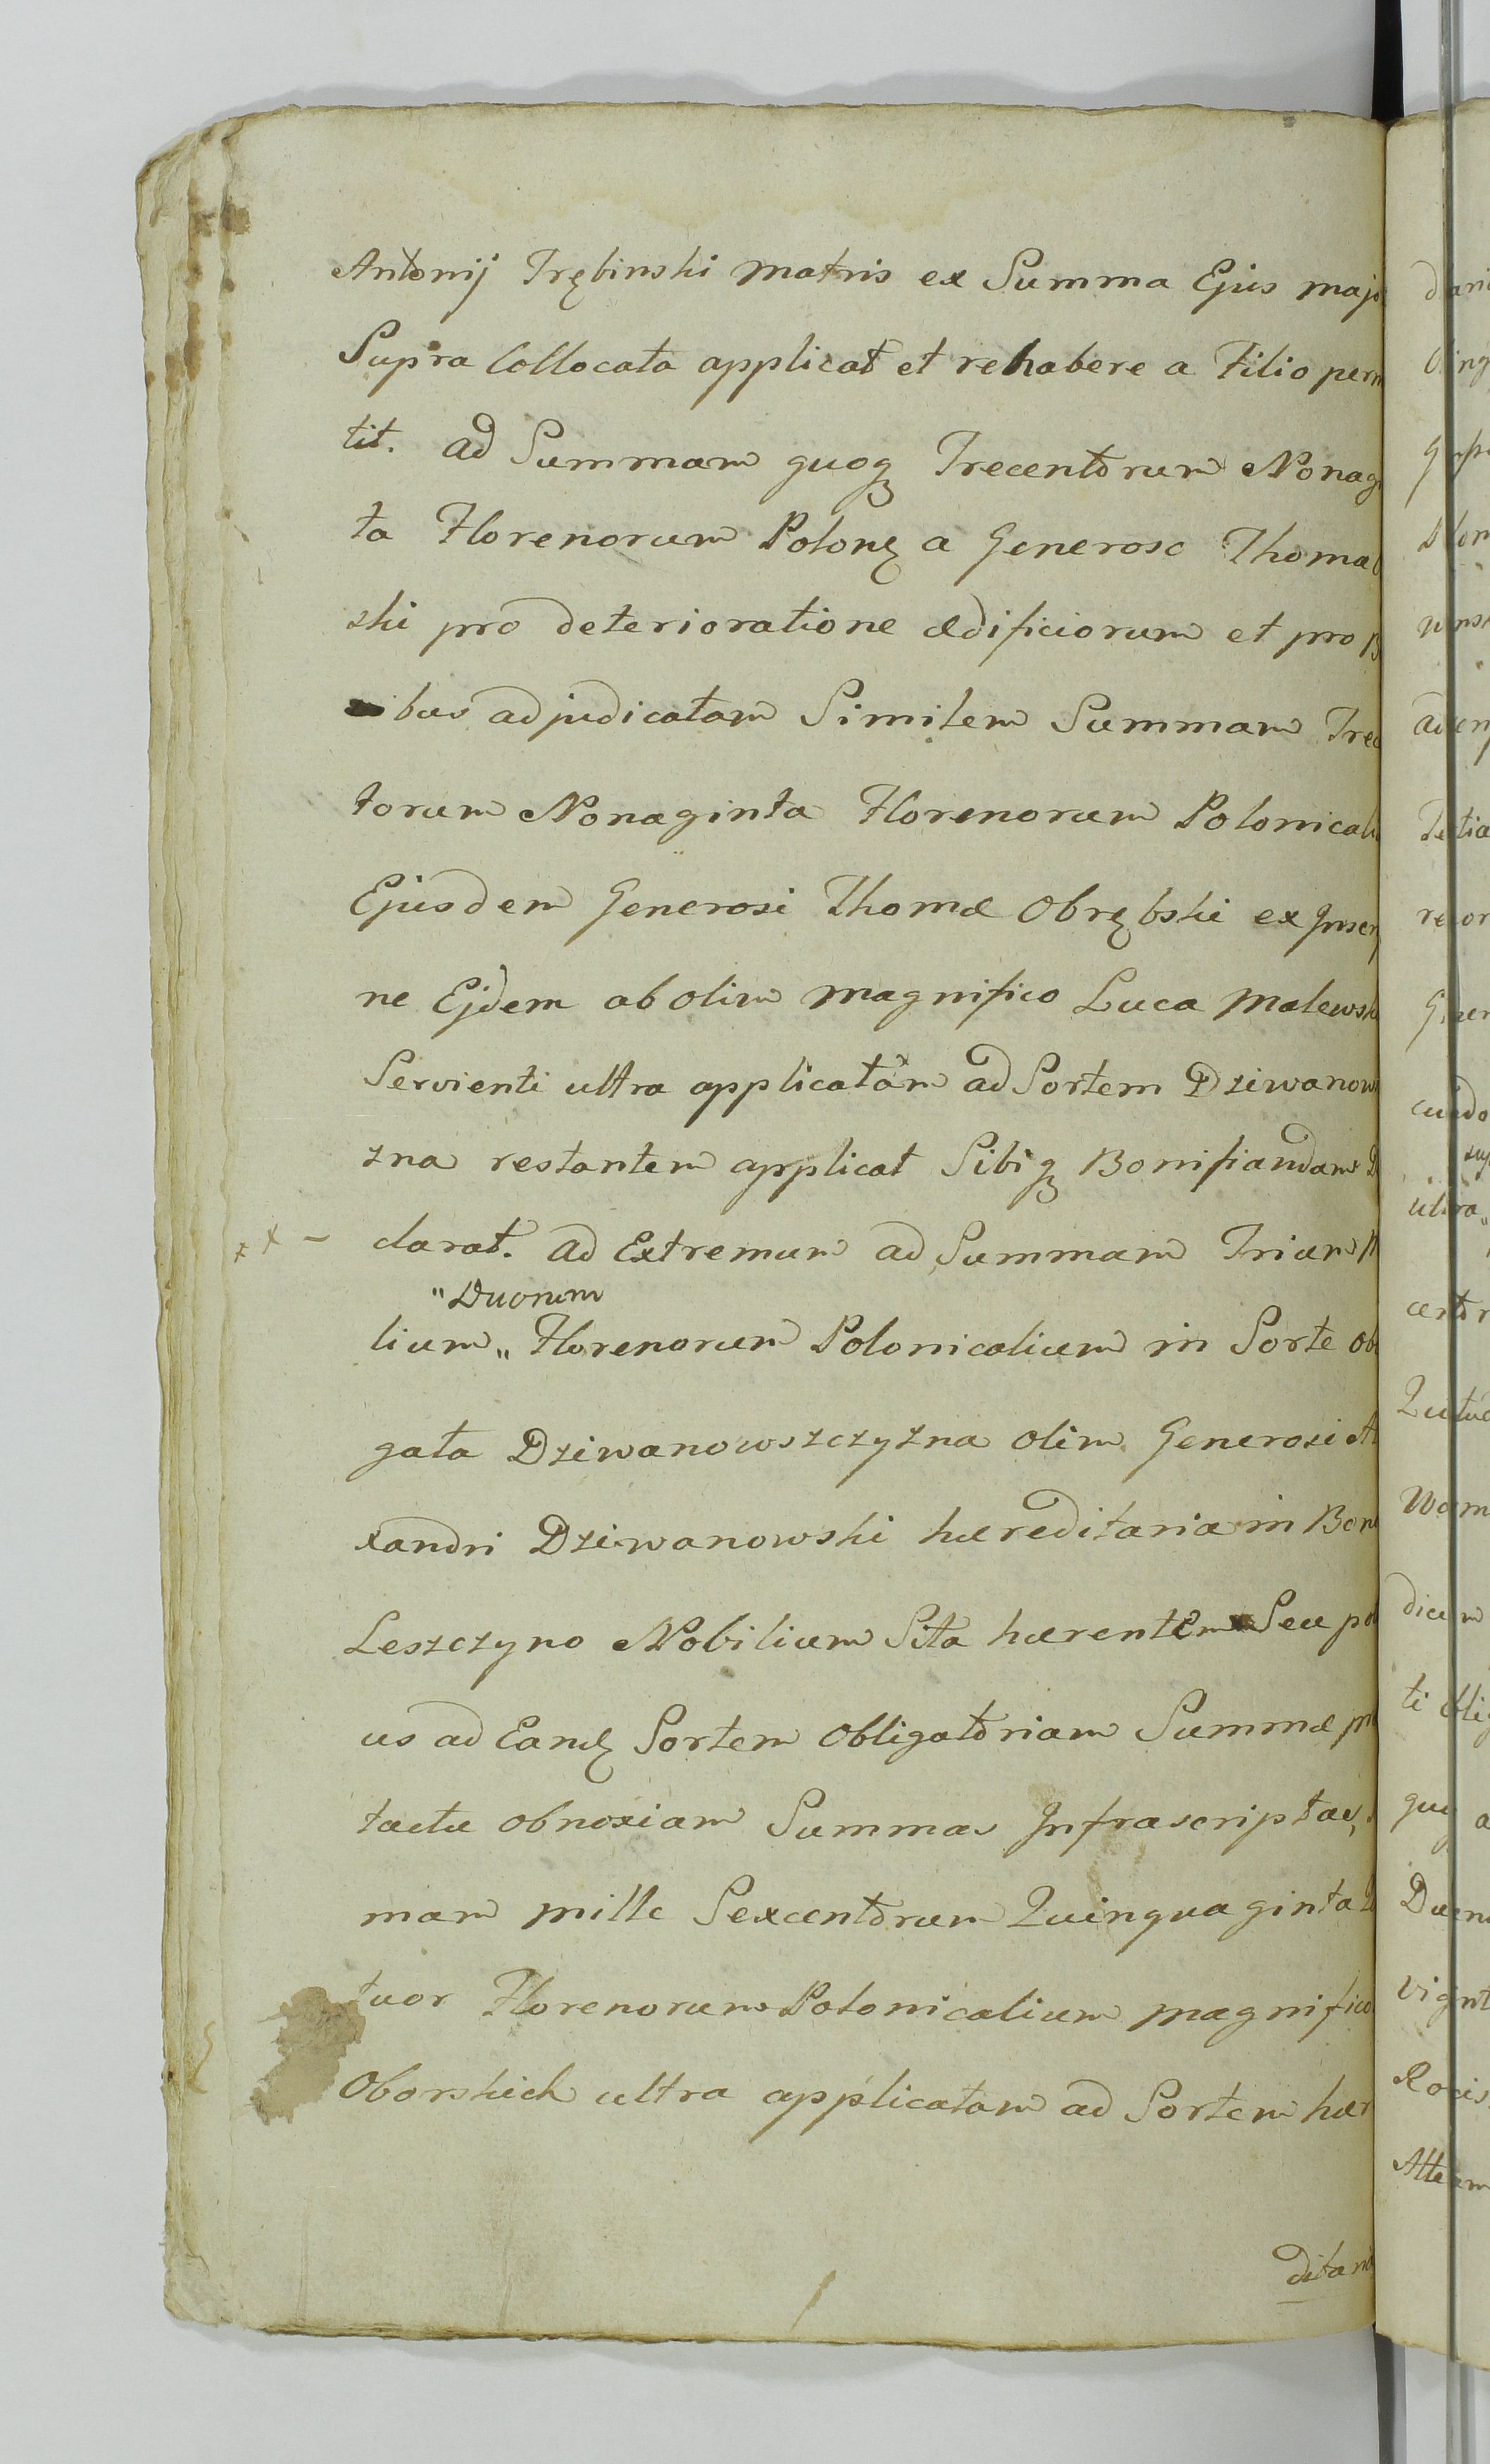 Antonij Trębinski Matris ex Summa Ejus maj
Supra Collocata applicat et rehabere a Filio perm
tit. ad Summam quoq Trecentorum Nonag
ta Florenorum Polonę a Generoso Thoma
ski pro deterioratione ædificiorum et pro
bus adjudicatam Similem Summam Trec
torum Nonaginta Florenorum Polonicali
Ejusdem Generosi Thomæ Obrębski ex Inscr
ne Ejdem ab olim Magnifico Luca Malewsk
Servienti ultra applicatam ad Sortem Dziwanow
zna restantem applicat Sibiq Bonifiandam
clarat. ad Extremum ad Summam Trium
"Duorum
lium „ Florenorum Polonicalium in Sorte ob
gata Dziwanowszczyzna olim Generosi
xandri Dziwanowski hæreditaria in Bon
Leszczyno Nobilium Sita hærentem Seu po
us ad Eandę Sortem Obligatoriam Summæ
tactu obnoxiam Summas Infrascriptas,
mam mille Sexcentorum Quinquaginta
tuor Florenorum Polonicalium Magnifico
Oborskich ultra applicatam ad Sortem hær
ditari